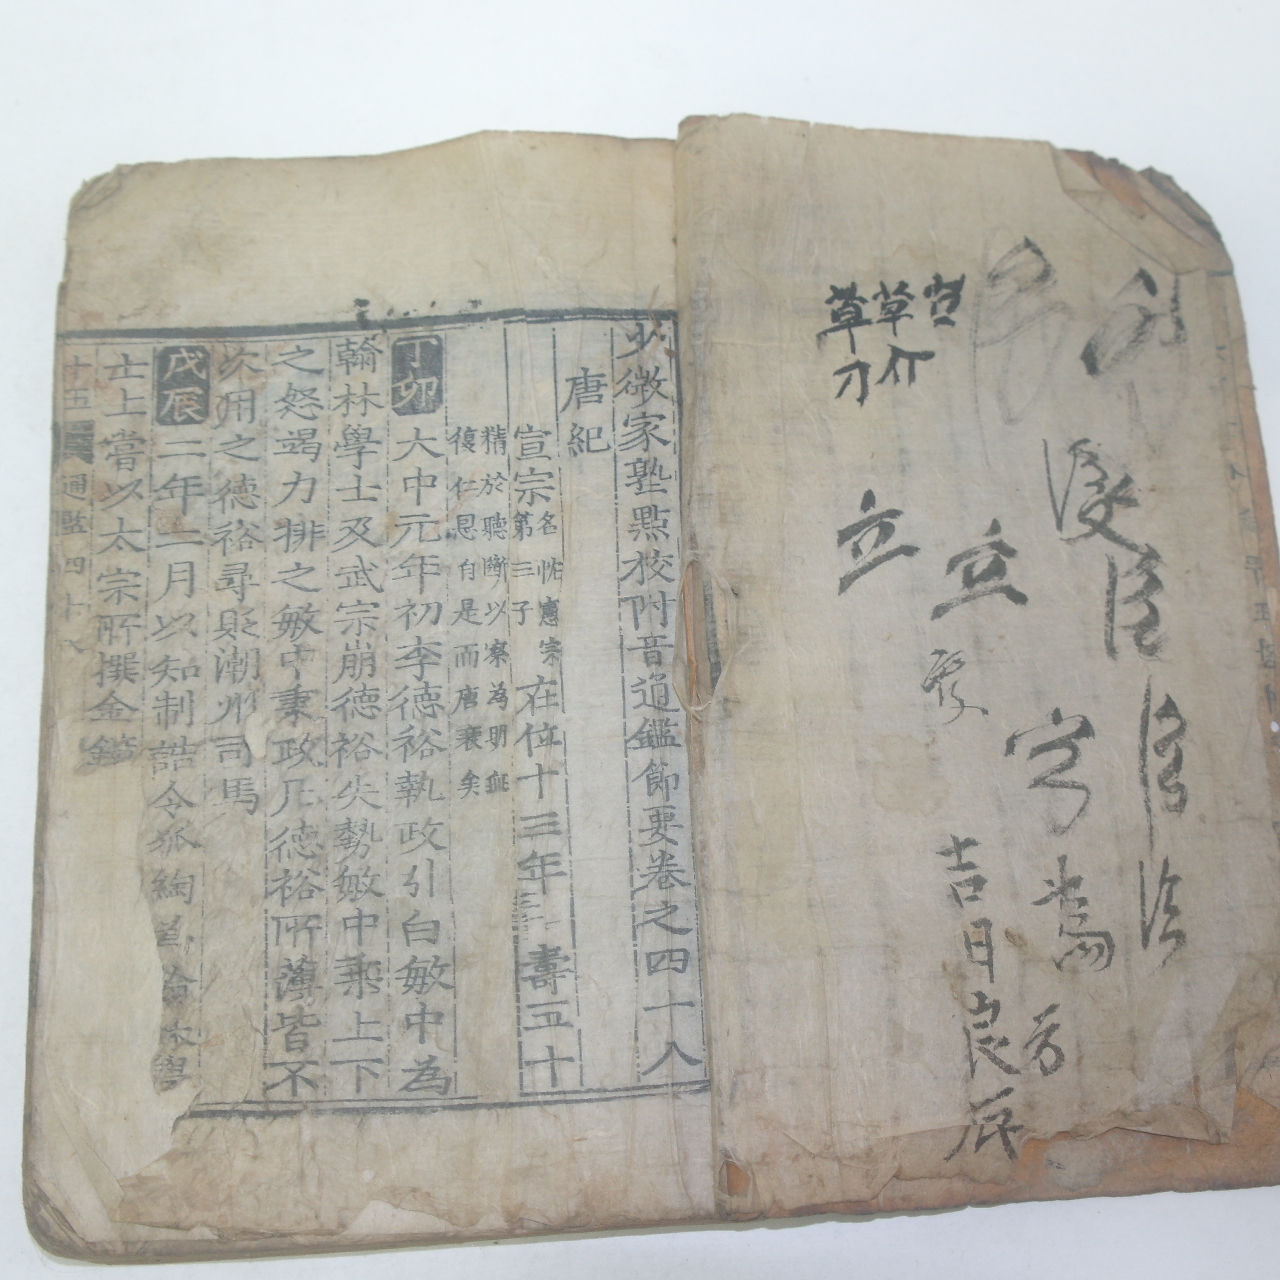 草草
刀
立
立
吉日良辰
少微家塾點校附音通鑑節要卷之四十八
唐紀
宣宗名忱憲宗第三子在位十三年壽五十
精於聽斷以察為明無
復仁恩自是而唐衰矣
丁卯大中元年初李德裕執政引白敏中為
翰林學士及武宗崩德裕失勢敏中乘上下
之怒竭力排之敏中秉政凡德裕所薄皆不
次用之德裕尋貶潮州司馬
戊辰二年二月以知制誥令狐綯為翰林學
士上嘗以太宗所撰金鑑
十五 通監四十八